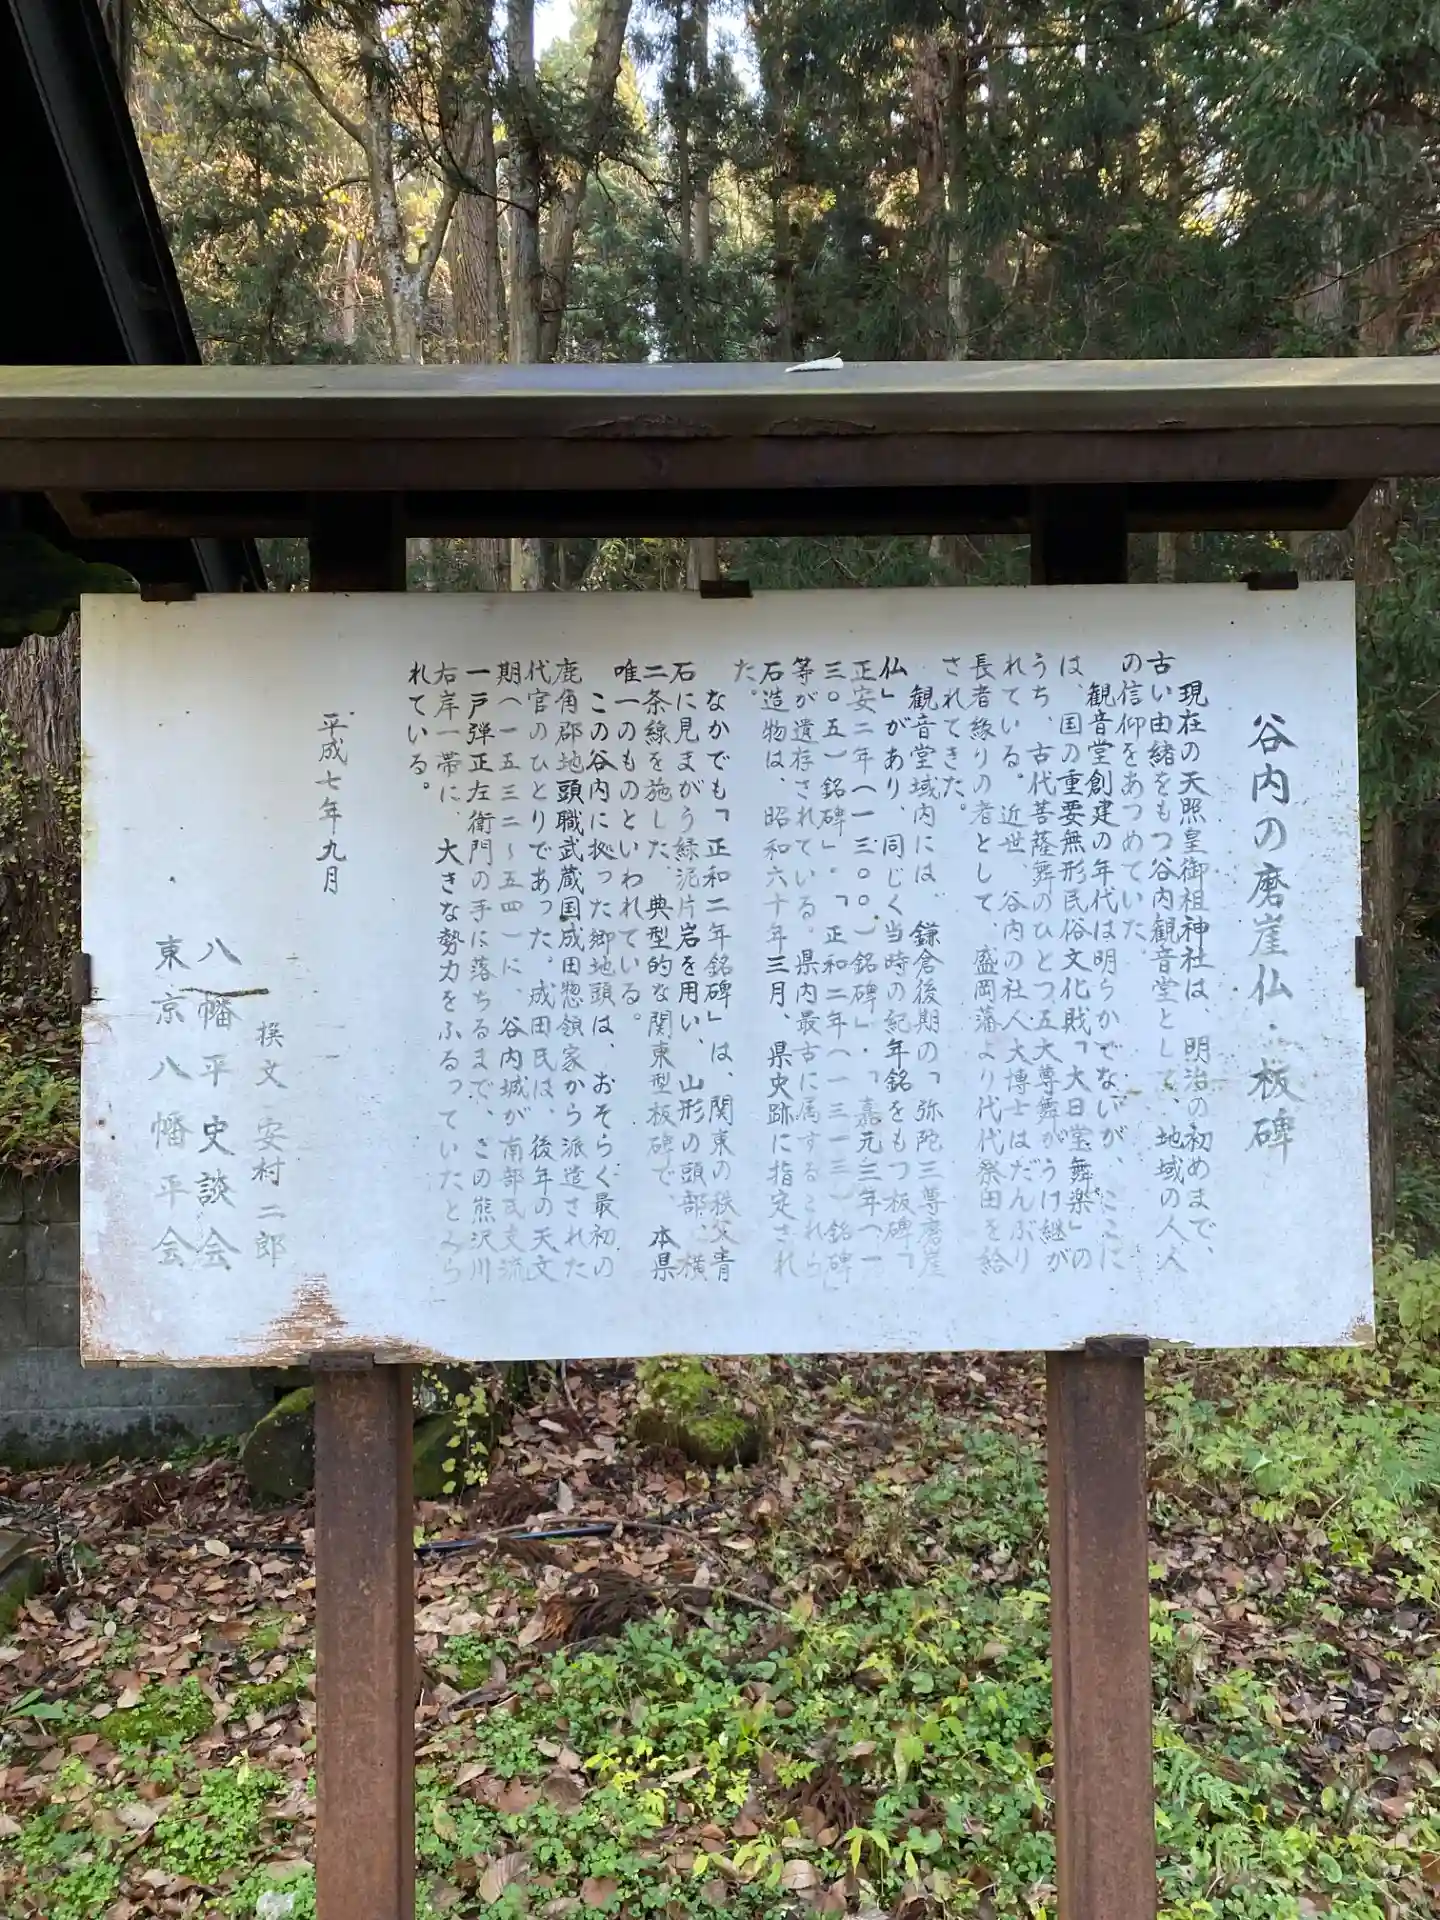 谷内の磨崖仏・板碑
現在の天照皇御祖神社は、明治の初めまで、
古い由緒をもつ谷内観音堂として、地域の人人
の信仰をあつめていた。
観音堂創建の年代は明らかでないが、ここに
は、国の重要無形民俗文化財「大日堂舞楽」の
うち、古代菩薩舞のひとつ五大尊舞がうけ継が
れている。近世、谷内の社人大博士はだんぶり
長者縁りの者として、盛岡藩より代代祭田を給
されてきた。
観音堂域内には、鎌倉後期の「弥陀三尊磨崖
仏」があり、同じく当時の紀年銘をもつ板碑「
正安二年(一三〇〇)銘碑」・「嘉元三年(一
三〇五)銘碑」・「正和二年(一三一三)銘碑」
等が遺存されている。県内最古に属するこれら
石造物は、昭和六十年三月、県史跡に指定され
た。
なかでも「正和二年銘碑」は、関東の秩父青
石に見まがう緑泥片岩を用い、山形の頭部、横
二条線を施した、典型的な関東型板碑で、本県
唯一のものといわれている。
この谷内に拠った郷地頭は、おそらく最初の
鹿角郡地頭職武蔵国成田惣領家から派遣された
代官のひとりであった。成田氏は、後年の天文
期(一五三二〜五四)に、谷内城が南部氏支流
一戸弾正左衛門の手に落ちるまで、この熊沢川
右岸一帯に、大きな勢力をふるっていたとみら
れている。
平成七年九月
撰文 安村二郎
八幡平史談会
東京八幡平会